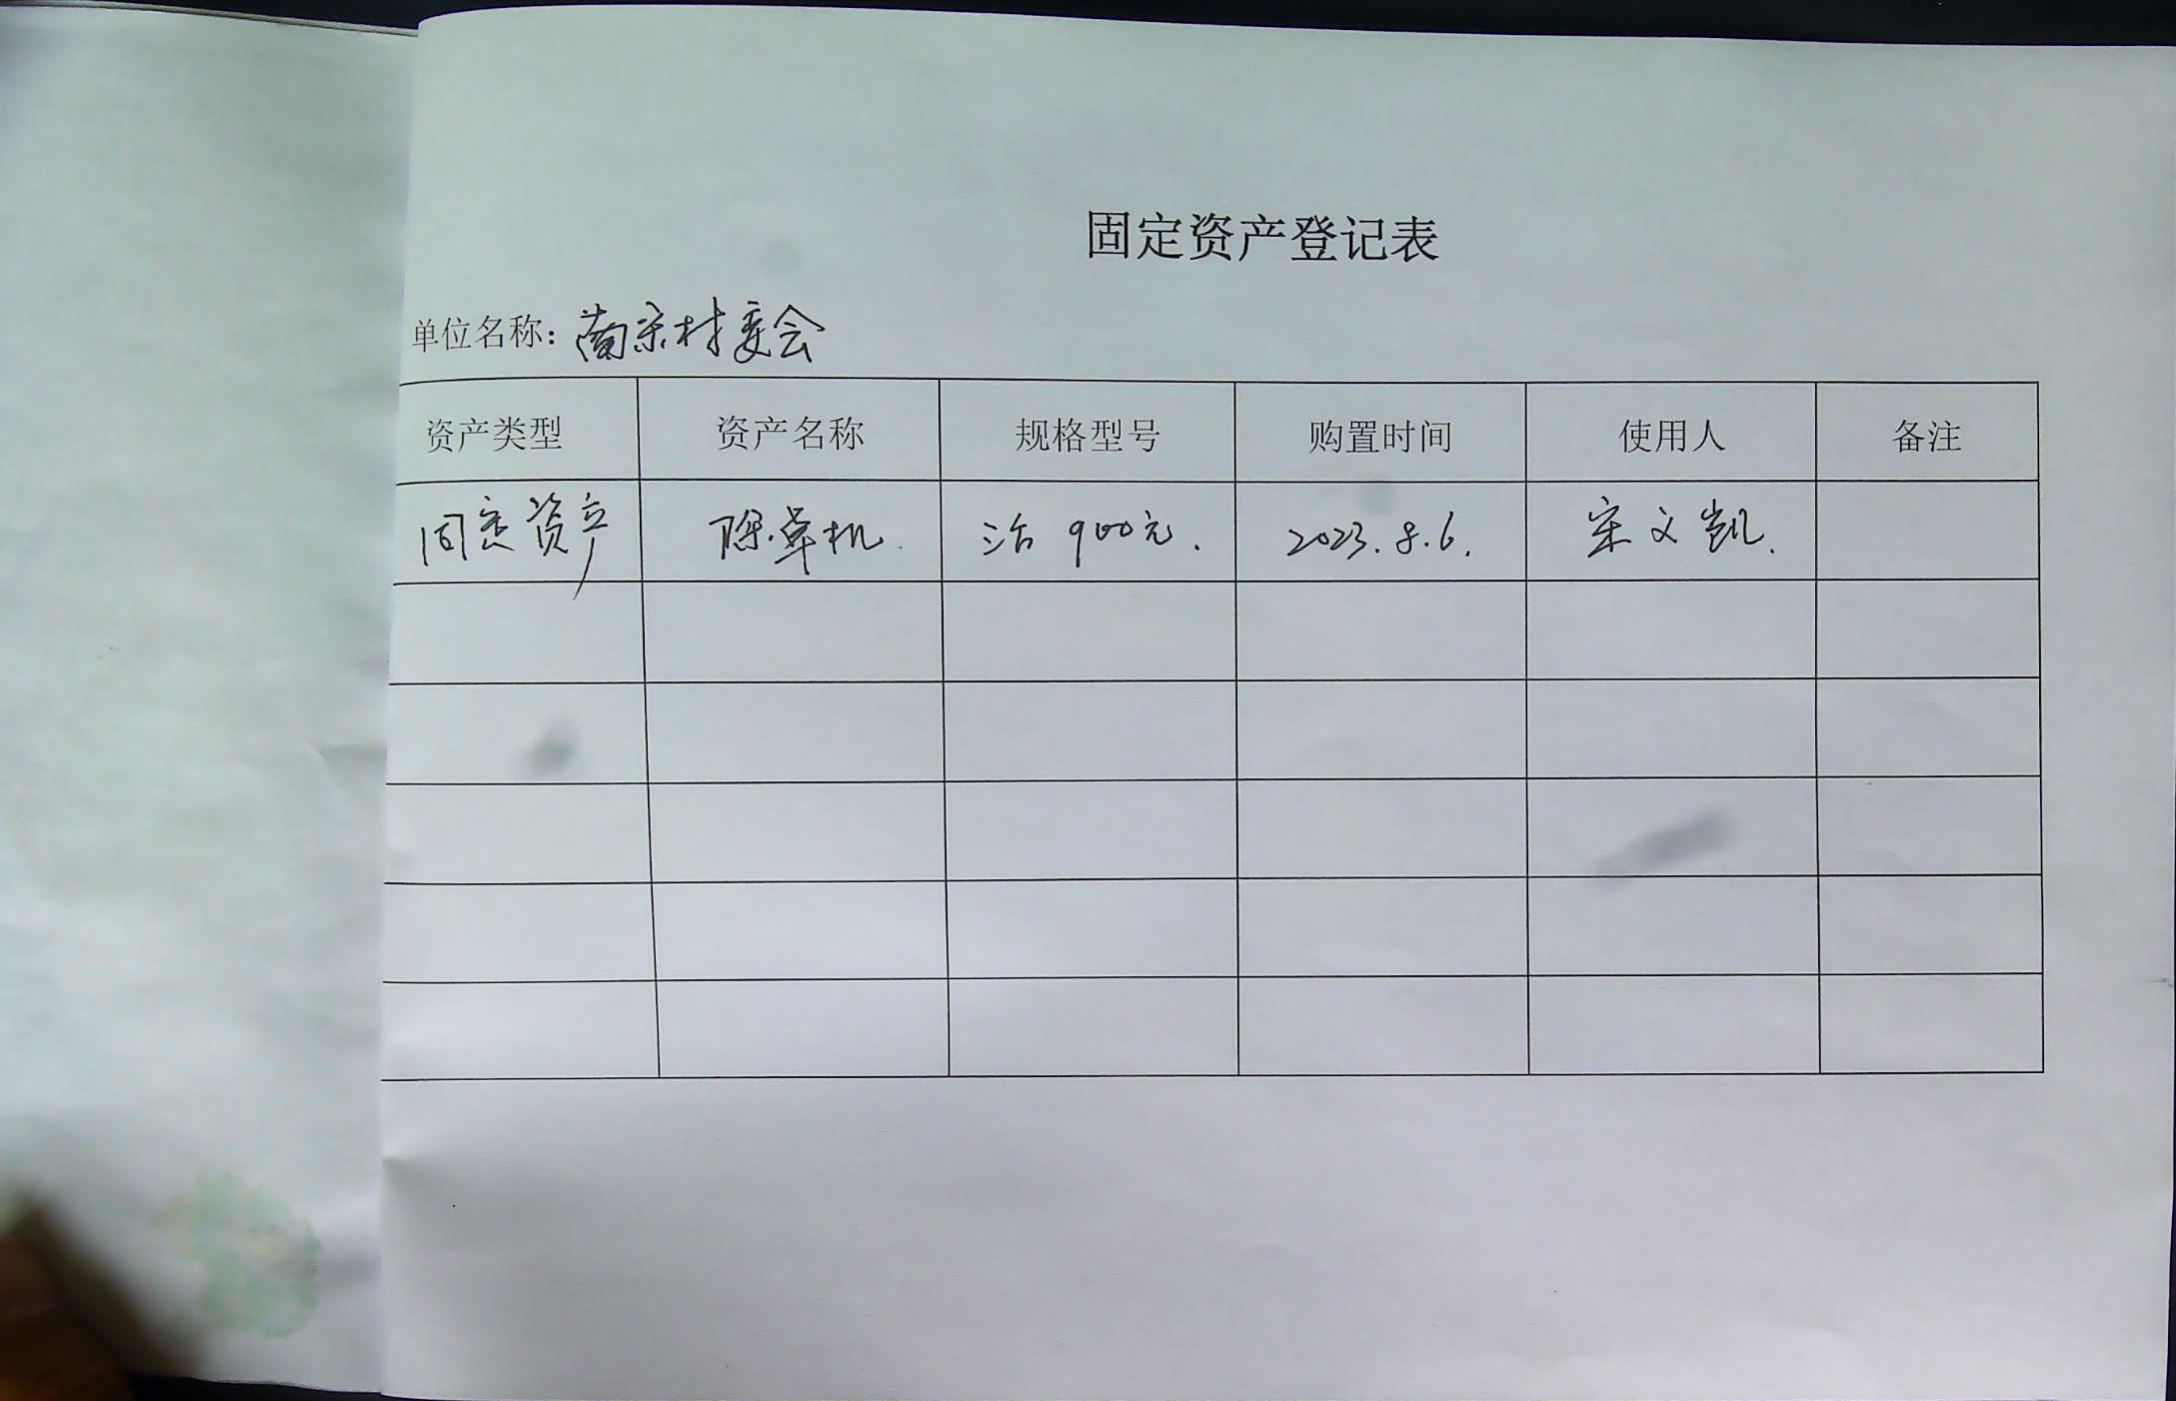 固定资产登记表
单位名称：南宋村委会
资产类型 资产名称 规格型号 购置时间 使用人 备注
固定资产 除草机. 三台 900元. 2023.8.6. 宋文凯.